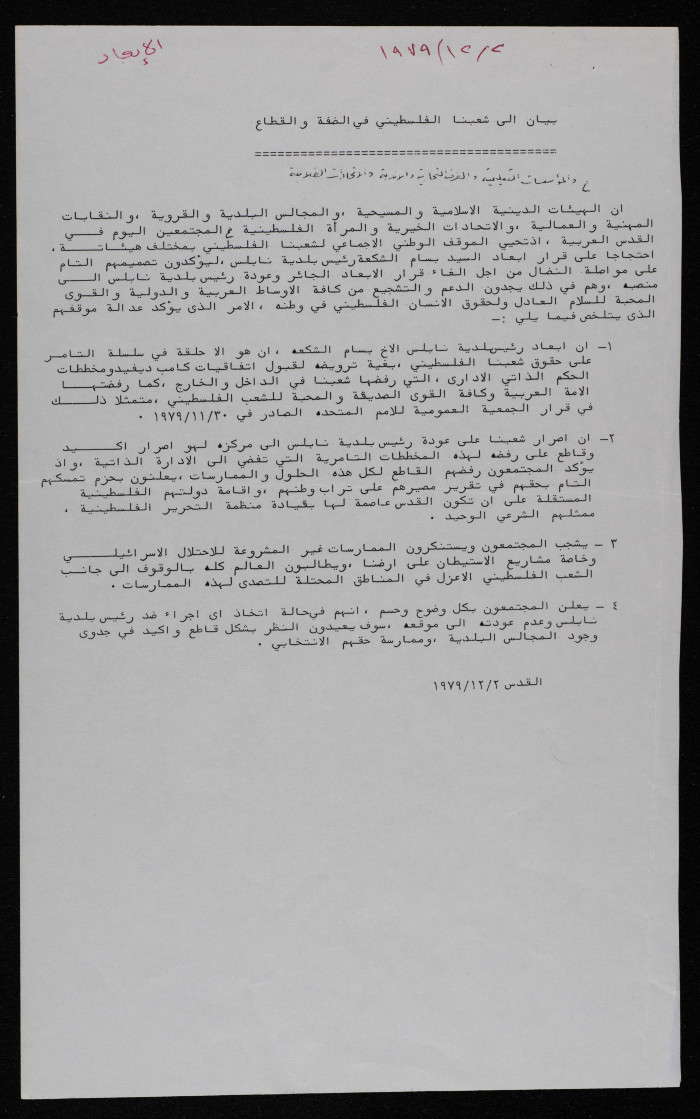 الإبعاد
١٩٧٩/١٢/٢
بيان الى شعبنا الفلسطيني في الضفة والقطاع
=========================================
والمؤسسات التعليمية والغرف التجارية والاندية والاتحادات الطلابية
ان الهيئات الدينية الاسلامية والمسيحية ،والمجالس البلدية والقروية ،والنقابات
المهنية والعمالية ،والاتحادات الخيرية والمرأة الفلسطينية المجتمعين اليوم فــي
القدس العربية ، اذتحيي الموقف الوطني الاجماعي لشعبنا الفلسطيني بمختلف هيئاتــــة ،
احتجاجا على قرار ابعاد السيد بسام الشكعة رئيس بلدية نابلس ،ليؤكدون تصميمهم التام
على مواصلة النضال من اجل الغاء قرار الابعاد الجائر وعودة رئيس بلدية نابلس الـــى
منصبه ،وهم في ذلك يجدون الدعم والتشجيع من كافة الاوساط العربية والدولية والقـوى
المحبة للسلام العادل ولحقوق الانسان الفلسطيني في وطنه ، الامر الذى يؤكد عدالة موقفهم
الذى يتلخص فيما يلي :-
١- ان ابعاد رئيسبلدية نابلس الاخ بسام الشكعه ،ان هو الا حلقة في سلسلة التامر
على حقوق شعبنا الفلسطيني ،بغية ترويضه لقبول اتفاقيات كامب ديفيدومخططات
الحكم الذاتي الادارى ،التي رفضها شعبنا في الداخل والخارج ،كما رفضتهـــا
الامة العربية وكافة القوى الصديقة والمحبة للشعب الفلسطيني ،متمثلا ذلـــك
في قرار الجمعية العمومية للامم المتحده الصادر في ١٩٧٩/١١/٣٠ .
٢- ان اصرار شعبنا على عودة رئيس بلدية نابلس الى مركزه لهو اصرار اكـــيد
وقاطع على رفضه لهذه المخططات التامرية التي تفضي الى الادارة الذاتية ،واذ
يؤكد المجتمعون رفضهم القاطع لكل هذه الحلول والممارسات ،يعلنون بحزم تمسكهم
التام بحقهم في تقرير مصيرهم على تراب وطنهم ،واقامة دولتهم الفلسطينية
المستقلة على ان تكون القدس عاصمة لها بقيادة منظمة التحرير الفلسطينية ،
ممثلهم الشرعي الوحيد .
٣ - يشجب المجتمعون ويستنكرون الممارسات غير المشروعة للاحتلال الاسرائيلـــي
وخاصة مشاريع الاستيطان على ارضنا ،ويطالبون العالم كله بالوقوف الى جانـب
الشعب الفلسطيني الاعزل في المناطق المحتلة للتصدى لهذه الممارسات .
٤ - يعلن المجتمعون بكل وضوح وحسم ، انهم فيحالة اتخاذ اى اجراء ضد رئيس بلدية
نابلس وعدم عودته الى موقعه ،سوف يعيدون النظر بشكل قاطع واكيد في جدوى
وجود المجالس البلدية ،وممارسة حقهم الانتخابي .
القدس ١٩٧٩/١٢/٢